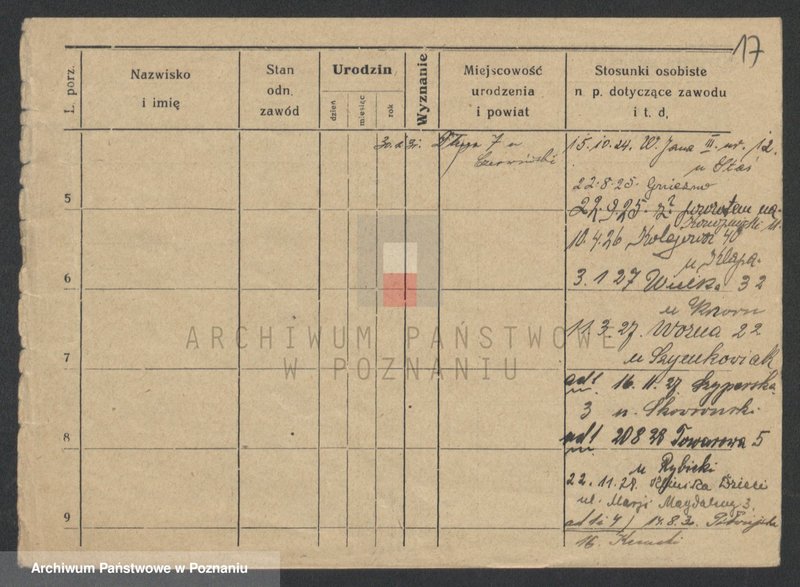 17
L. porz.
Nazwisko
i imię
Stan
odn.
zawód
Urodzin
dzień
miesiąc
rok
Wyznanie
Miejscowość
urodzenia
i powiat
Stosunki osobiste
n. p. dotyczące zawodu
i t. d.
7 u
Czerwiński
15.10.24. W. Jana III. nr. 12.
u Staś
22.8.25. Gniezno
5
22.9.25. z powrotem na
10.4.26 Kolejowa 40
u Klapa
6
3.1.27 Wielka 32
u
11.3.27. Woźna 22
u Szymkowiak
7
ad 1 16.11.27 Szyperska
3 u. Skowroński
8
ad 1 20 8 28 Towarowa 5
u Rybicki
22.11.28. Dzieci
ul. Marji Magdaleny 3.
9
14.8.30.
16.
ARCHIWUM PAŃSTWOWE
W POZNANIU
Archiwum Państwowe w Poznaniu